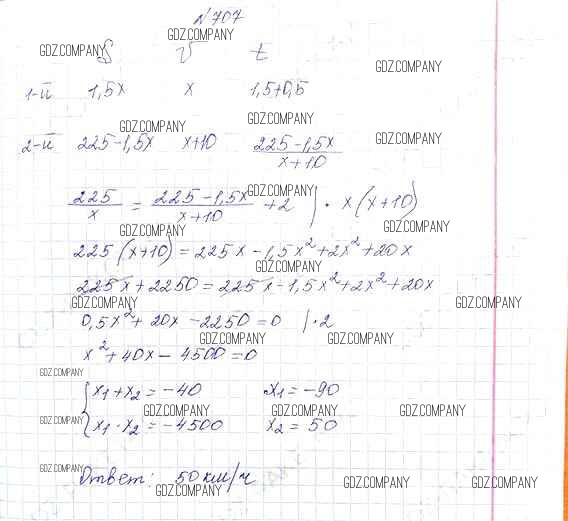 №707
GDZ.COMPANY
GDZ.COMPANY S v t
GDZ.COMPANY
1-й 1,5x x 1,5+0,5
GDZ.COMPANY GDZ.COMPANY
2-й 225-1,5x x+10 (225-1,5x)/(x+10) GDZ.COMPANY
225/x = (225-1,5x)/(x+10) +2 | · x(x+10) GDZ.COMPANY
GDZ.COMPANY GDZ.COMPANY
225(x+10) = 225x - 1,5x² + 2x² + 20x
GDZ.COMPANY
225x + 2250 = 225x - 1,5x² + 2x² + 20x
GDZ.COMPANY GDZ.COMPANY
0,5x² + 20x - 2250 = 0 | · 2
GDZ.COMPANY GDZ.COMPANY
x² + 40x - 4500 = 0
GDZ.COMPANY
{ x₁ + x₂ = -40 x₁ = -90
GDZ.COMPANY GDZ.COMPANY GDZ.COMPANY
x₁ · x₂ = -4500 x₂ = 50
GDZ.COMPANY
Ответ: 50 км/ч
GDZ.COMPANY GDZ.COMPANY GDZ.COMPANY